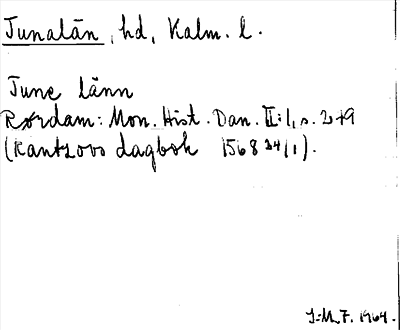 Tunalän, hd, Kalm. l.
Tune Länn
Rørdam: Mon. Hist. Dan. II:1, s. 249
(Rantzovs dagbok 1568 24/1).
J:M.F. 1964.